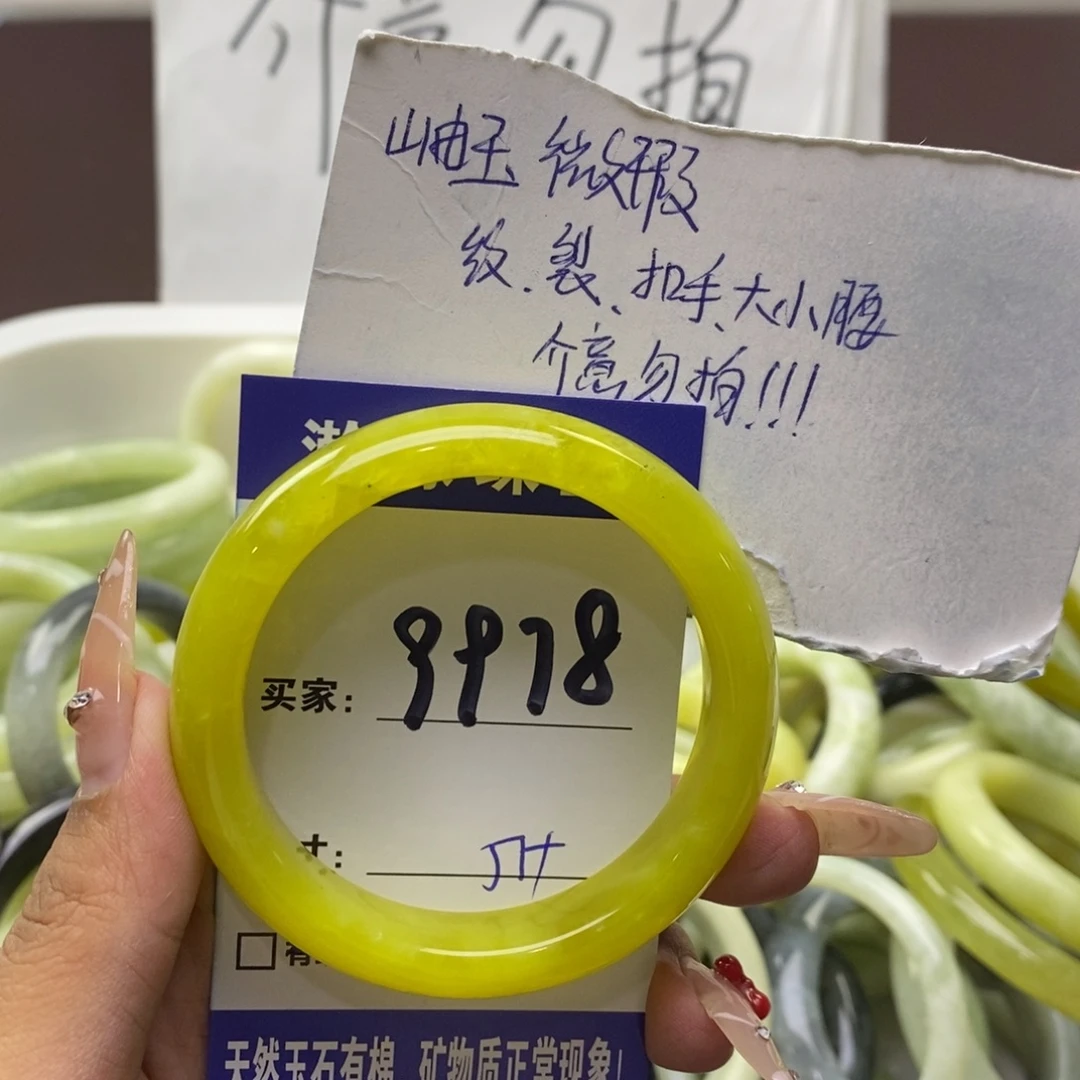 介意勿拍
岫玉 微瑕
纹.裂、扣手、大小腰
介意勿拍!!!
买家: 9978
寸:
天然玉石有棉 矿物质正常现象!